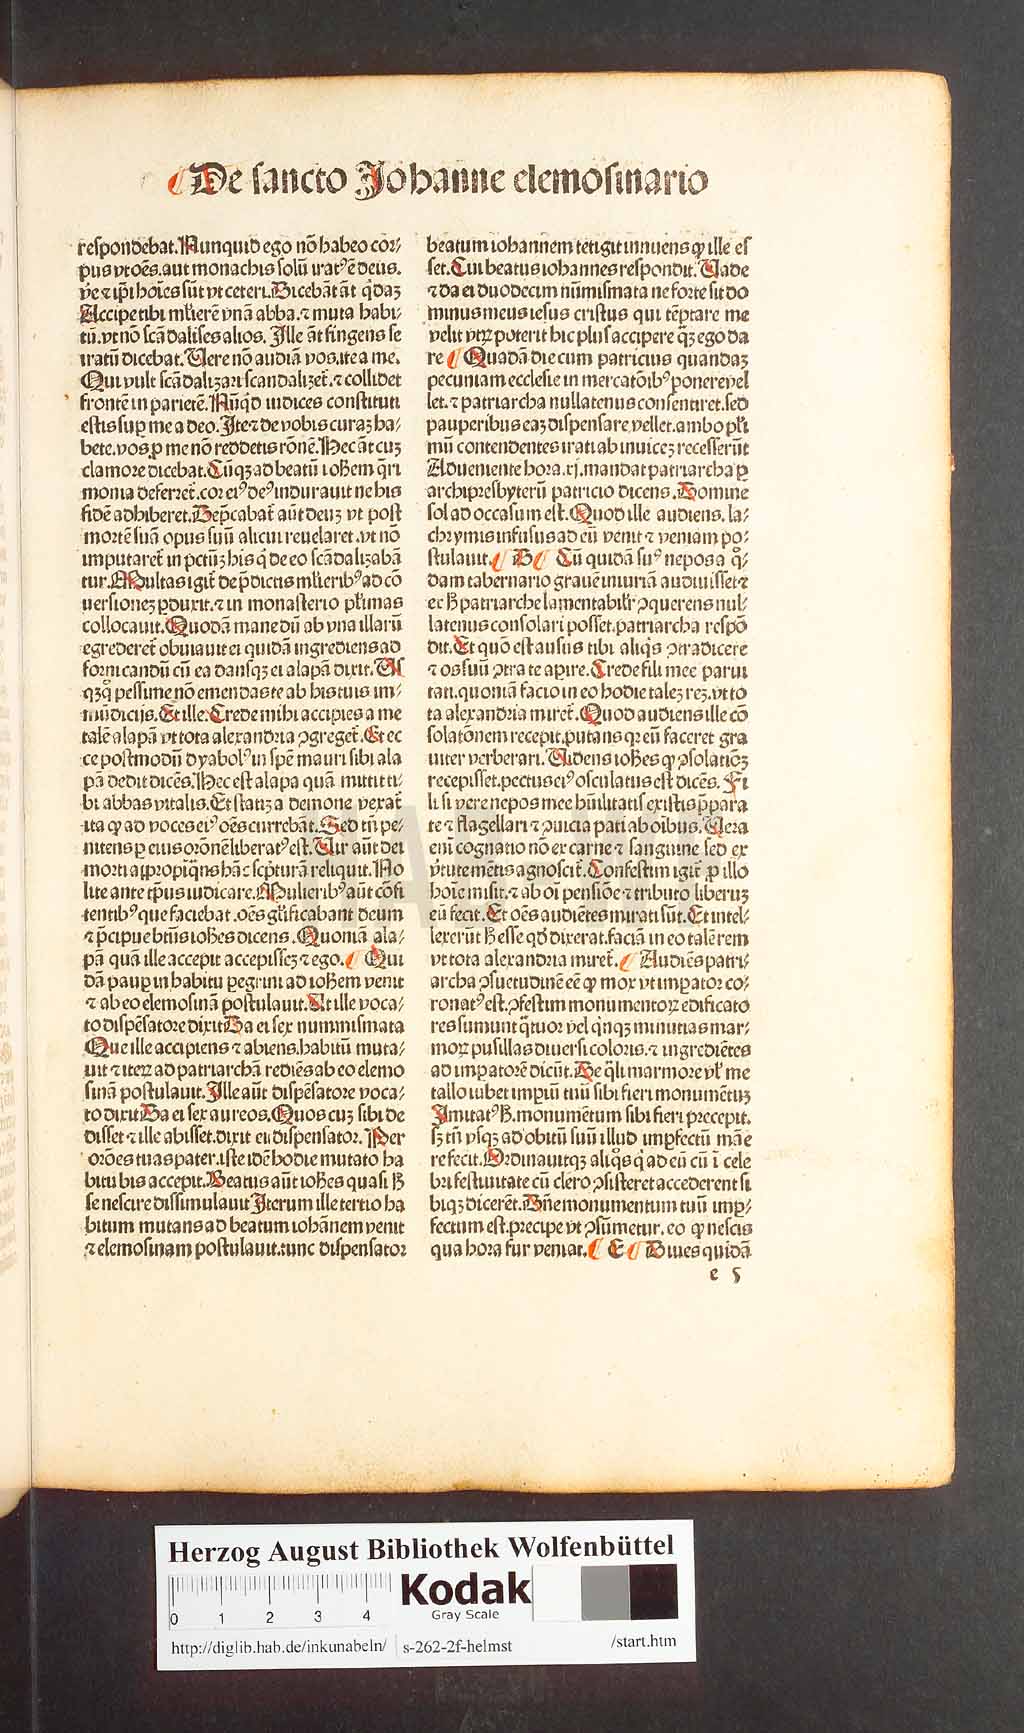 De sancto Johanne elemosinario
respondebat. Nunquid ego nõ habeo cor⸗
pus vt oẽs. aut monachis solũ iratꝰ ẽ deus.
vẽ ⁊ ip̃i hoĩes sũt vt ceteri. Dicebãt ãt q̃daꝫ
Accipe tibi mĺierẽ vnã abba. ⁊ muta habi⸗
tũ. vt nõ scãdalises alios. Ille ãt fingens se
iratũ dicebat. Vere nõ audiã vos. ite a me.
Qui vult scãdalizari scandalizet̃. ⁊ collidet
frontẽ in parietẽ. Nũqd̃ iudices constituti
estis sup̱ me a deo. Ite ⁊ de vobis curaꝫ ha⸗
bete. vos ꝓ me nõ reddetis rõnẽ. Hec ãt cuꝫ
clamore dicebat. Cũqꝫ ad beatũ iohẽm q̃ri
monia deferret̃. cor eiꝰ deꝰ indurauit ne his
fidẽ adhiberet. Dep̃cabat̃ aũt deuꝫ vt post
mortẽ suã opus suũ alicui reuelaret. vt nõ
imputaret̃ in pctũꝫ his q̃ de eo scãdalizabã
tur. Multas igit̃ de p̃dictis mĺieribꝰ ad cõ
uersionez ꝑduxit. ⁊ in monasterio pĺimas
collocauit. Quodã mane dũ ab vna illarũ
egrederet̃ obuiauit ei quidã ingrediens ad
fornicandũ cũ ea dansqꝫ ei alapã dixit. Vs
qꝫquo pessime nõ emendas te ab his tuis im⸗
mũdicijs. Et ille. Crede mihi accipies a me
talẽ alapã vt tota alexandria ꝯgreget̃. Et ec
ce postmodũ dyabolꝰ in spẽ mauri sibi ala
pã dedit dicẽs. Hec est alapa quã mittit ti⸗
bi abbas vitalis. Et statiꝫ a demone vexat̃
ita ꝙ ad voces eiꝰ oẽs currebãt. Sed tñ pe⸗
nitens ꝑ eius orõnẽ liberatꝰ est. Vir aũt dei
morti appropĩqns hãc scripturã reliquit. No
lite ante tp̃us iudicare. Mulieribꝰ aũt cõfi
tentibꝰ que faciebat. oẽs gĺificabant deum
⁊ p̃cipue btũs iohẽs dicens. Quoniã ala⸗
pã quã ille accepit accepisseꝫ ⁊ ego. Qui
dã pauꝑ in habitu ꝑegrini ad iohẽm venit
⁊ ab eo elemosinã postulauit. At ille voca⸗
to dispẽsatore dixit Da ei sex nummismata
Que ille accipiens ⁊ abiens. habitũ muta⸗
uit ⁊ iteꝝ ad patriarchã rediẽs ab eo elemo
sinã postulauit. Ille aũt dispẽsatore voca⸗
to dixit Da ei sex aureos. Quos cuꝫ sibi de
disset ⁊ ille abisset. dixit ei dispensator. Per
orões tuas pater. iste idẽ hodie mutato ha
bitu bis accepit. Beatus aũt iohẽs quasi h̃
se nescire dissimulauit Iterum ille tertio ha
bitum mutans ad beatum iohãnem venit
⁊ elemosinam postulauit. tunc dispensator
beatum iohannem tetigit innuens ꝙ ille es
set. Cui beatus iohannes respondit. Vade
⁊ da ei duodecim nũmismata ne forte sit do
minus meus iesus cristus qui tẽptare me
velit vtꝝ poterit hic plus accipere q̃ꝫ ego da
re Quadã die cum patricius quandaꝫ
pecuniam ecclesie in mercatõibꝰ ponere vel
let. ⁊ patriarcha nullatenus consentiret. sed
pauperibus eaꝫ dispensare vellet. ambo pĺi
mũ contendentes irati ab inuiceꝫ recesserũt
Adueniente hora. xj. mandat patriarcha ꝑ
archipresbyterũ patricio dicens. Domine
sol ad occasum est. Quod ille audiens. la⸗
chrymis infusus ad eũ venit ⁊ veniam po⸗
stulauit. D Cũ quidã suꝰ nepos a q̊⸗
dam tabernario grauẽ iniuriã audiuisset ⁊
ec h̃ patriarche lamentabiĺr ꝯquerens nul⸗
latenus consolari posset. patriarcha respõ
dit. Et quõ est ausus tibi aliq̃s ꝯtradicere
⁊ os suũ ꝯtra te aꝑire. Crede fili mee parui
tati. quoniã facio in eo hodie taleꝫ reꝫ. vt to
ta alexandria miret̃. Quod audiens ille cõ
solatõnem recepit. putans qꝛ eũ faceret gra
uiter verberari. Videns iohẽs ꝙ ꝯsolatiõꝫ
recepisset. pectus eiꝰ osculatus est dicẽs. Fi
li si vere nepos mee hũilitatis existis p̃para
te ⁊ flagellari ⁊ ꝯuicia pati ab oĩbus. Vera
eni͂ cognatio nõ ex carne ⁊ sanguine sed ex
v̓tute mẽtis agnoscit̃. Confestim igit̃ ꝓ illo
hoĩe misit. ⁊ ab oĩ pensiõe ⁊ tributo liberuꝫ
eũ fecit. Et oẽs audiẽtes mirati sũt. Et intel⸗
lexerũt h̃ esse qd̃ dixerat. faciã in eo talẽ rem
vt tota alexandria miret̃. Audiẽs patri⸗
archa ꝯsuetudinẽ eẽ ꝙ mox vt imꝑator co⸗
ronatꝰ est. ꝯfestim monumentoꝝ edificato
res sumunt q̃tuor vel qñqꝫ minutias mar⸗
moꝝ pusillas diuersi coloris. ⁊ ingrediẽtes
ad imꝑatorẽ dicũt. De q̃li marmore vĺ me
tallo iubet imꝑiũ tuũ sibi fieri monumẽtuꝫ
Imitatꝰ h̃. monumẽtum sibi fieri precepit.
sꝫ tñ vsqꝫ ad obitũ suũ illud imꝑfectũ mãe
re fecit. Ordinauitqꝫ aliq̃s q̃ ad eũ cũ ĩ cele
bri festiuitate cũ clero ꝯsisteret accederent si
biqꝫ dicerẽt. Dñe monumentum tuũ imꝑ⸗
fectum est. precipe vt ꝯsũmetur. eo ꝙ nescis
qua hora fur veniat. E Diues quidã
e 5
Herzog August Bibliothek Wolfenbüttel
Kodak
Gray Scale
0 1 2 3 4
http://diglib.hab.de/inkunabeln/ s-262-2f-helmst /start.htm